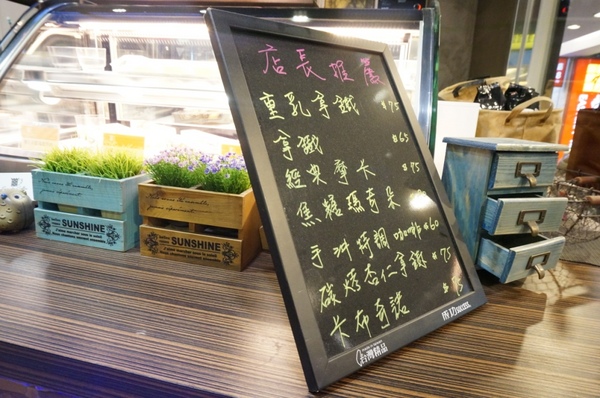 店長推薦
重乳拿鐵 $75
拿鐵 $65
經典摩卡 $75
焦糖瑪奇朵
手沖特調 $60
碳烤杏仁拿鐵 $75
卡布奇諾
台灣精品
SUNSHINE
SUNSHINE